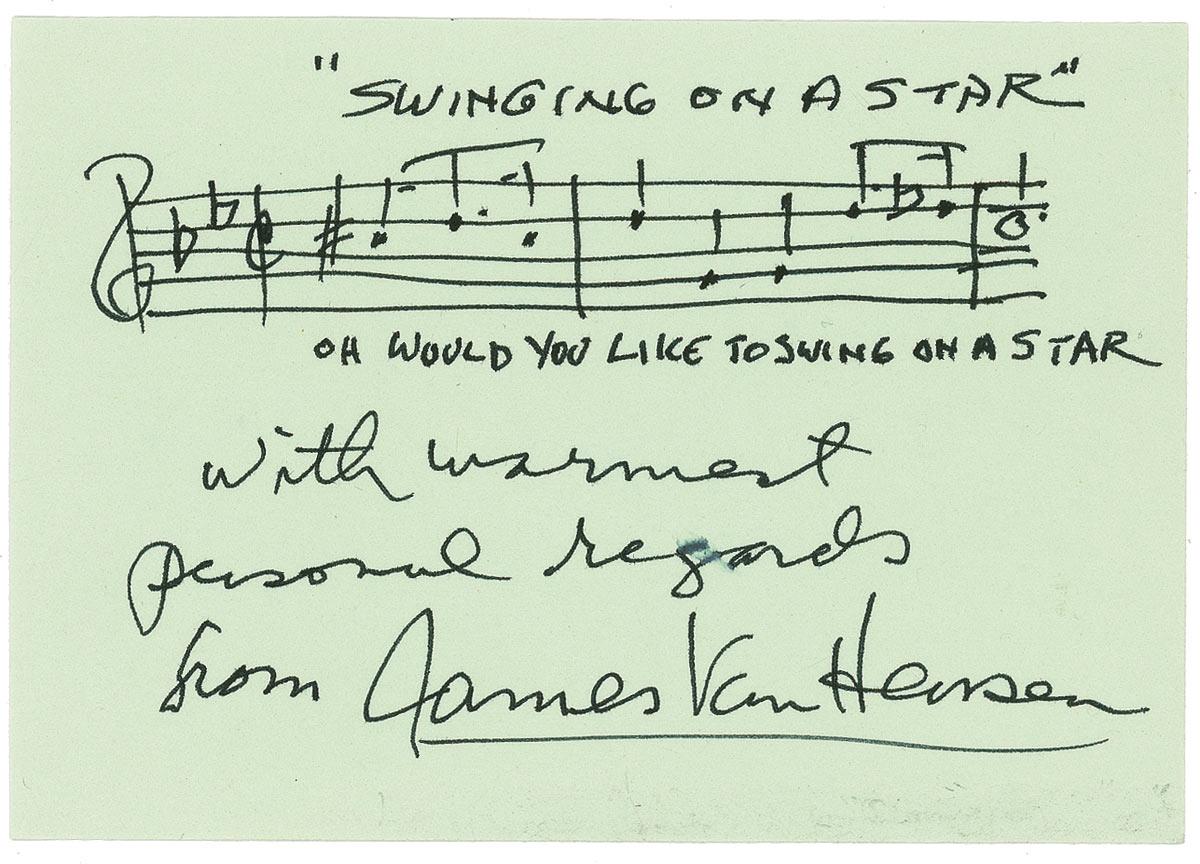 "SWINGING ON A STAR"
OH WOULD YOU LIKE TO SWING ON A STAR
with warmest
personal regards
from James Van Heusen